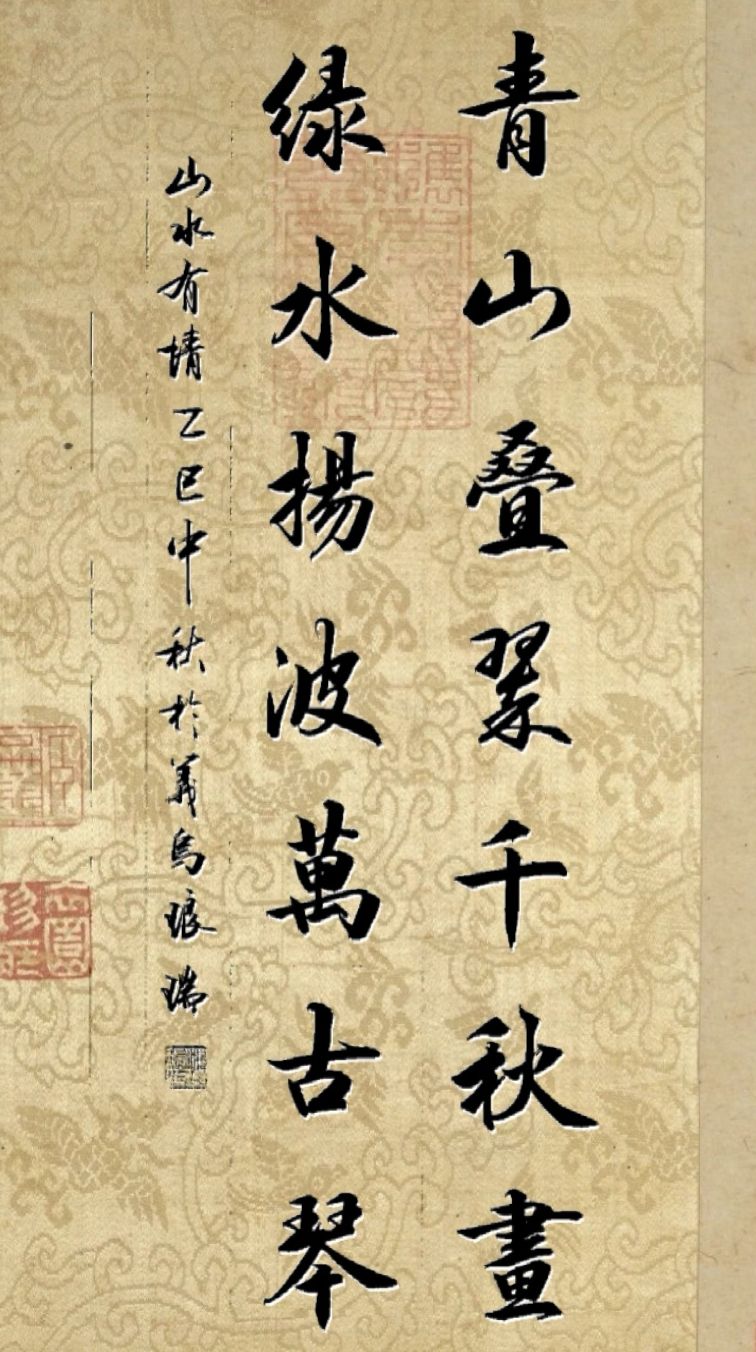 青山叠翠千秋畫
绿水揚波萬古琴
山水有情乙巳中秋於義烏琅瑞